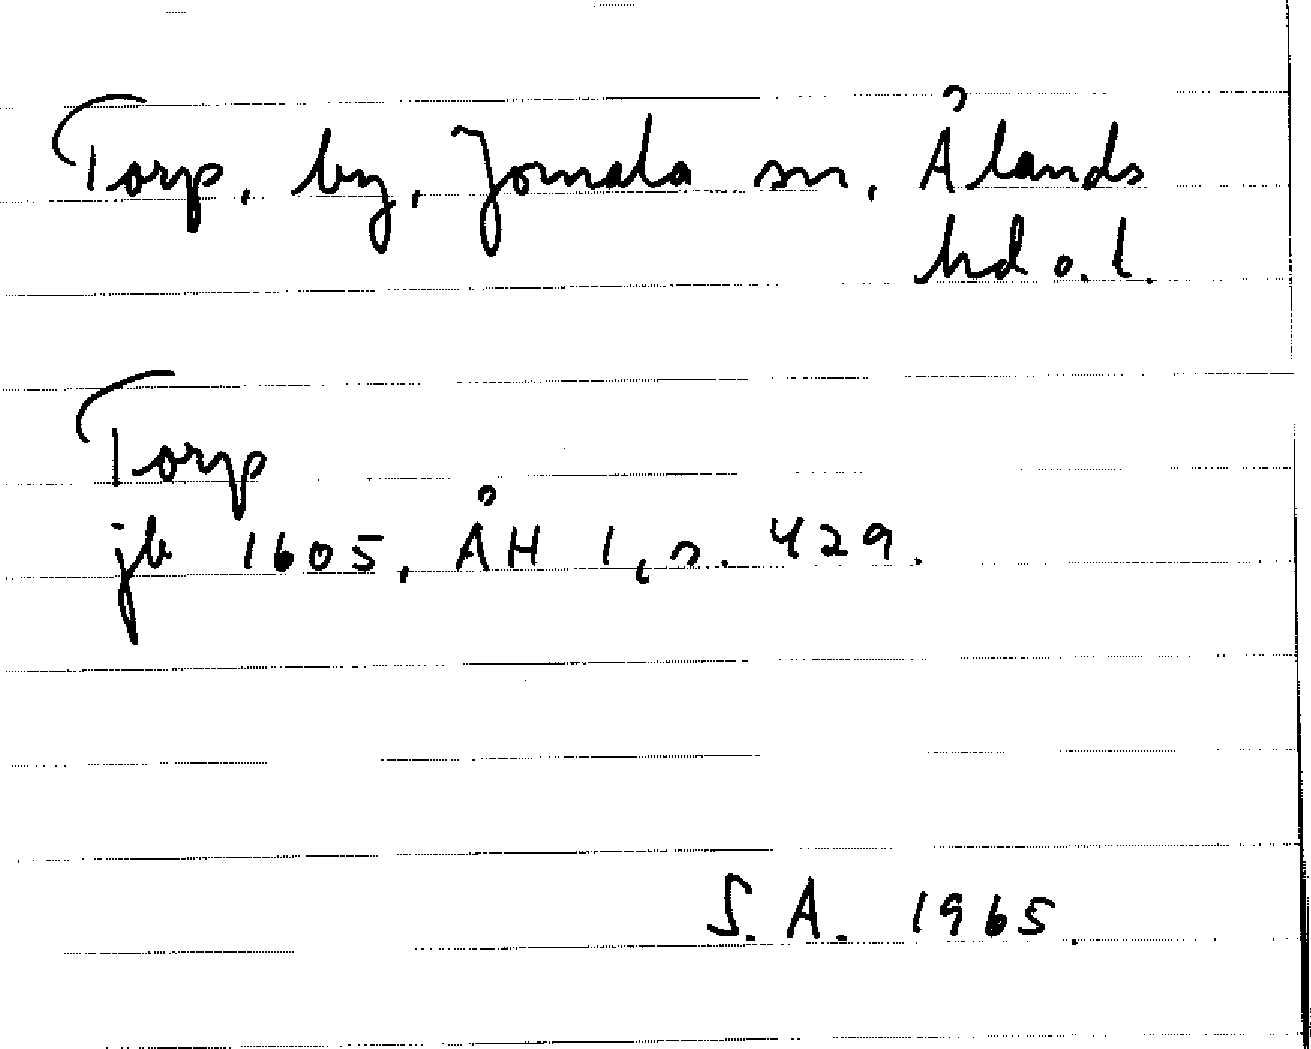 Torp, by, Jomala sn, Ålands
hd o. l.
Torp
jb 1605, ÅH 1, s. 429.
S. A. 1965.